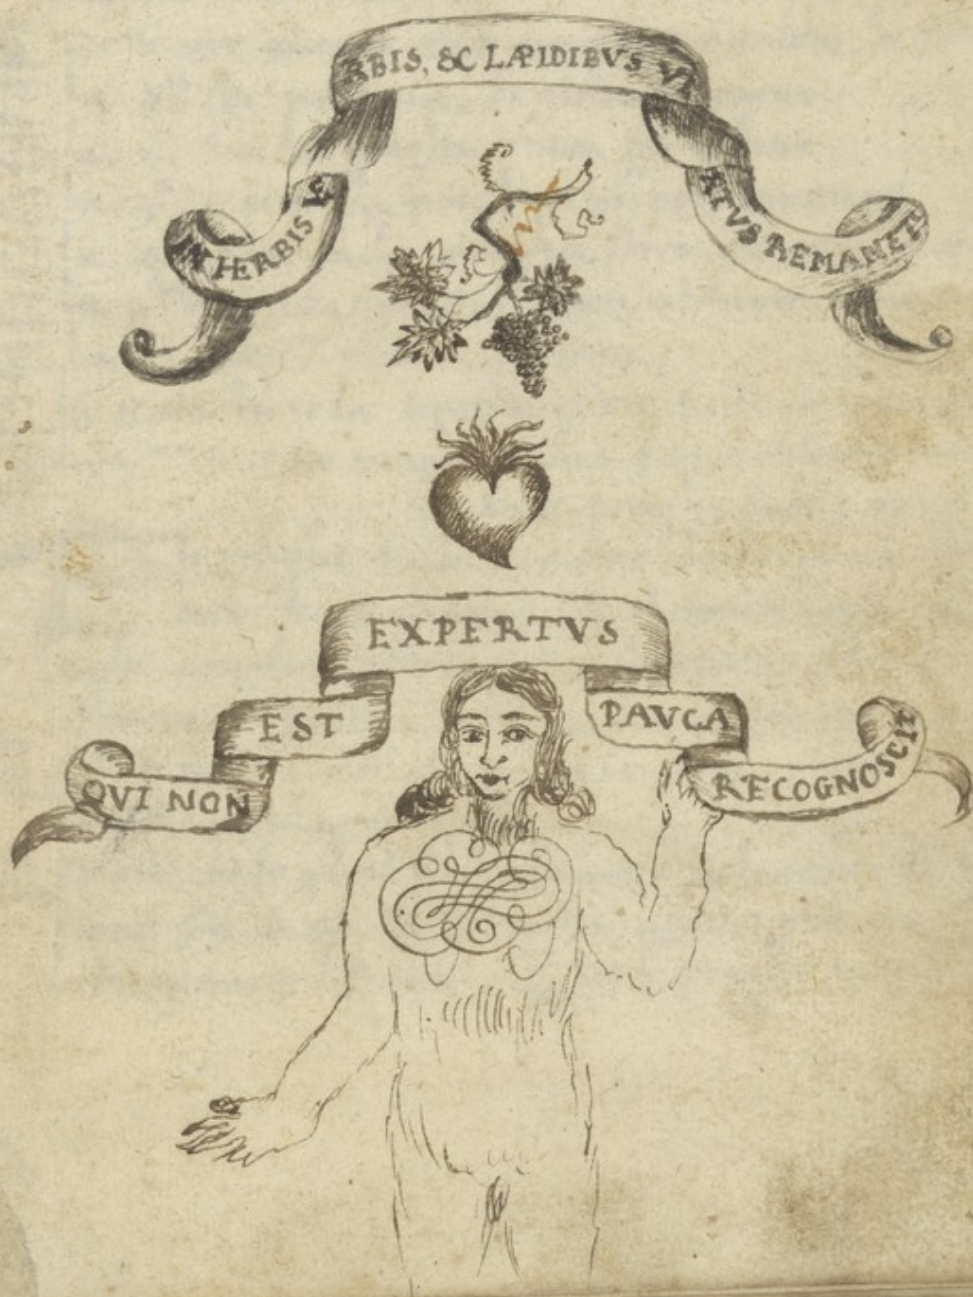 IN HERBIS VE
RBIS, & LAPIDIBVS VI
RTVS REMANET
QVI NON
EST
EXPERTVS
PAVCA
RECOGNOSCIT